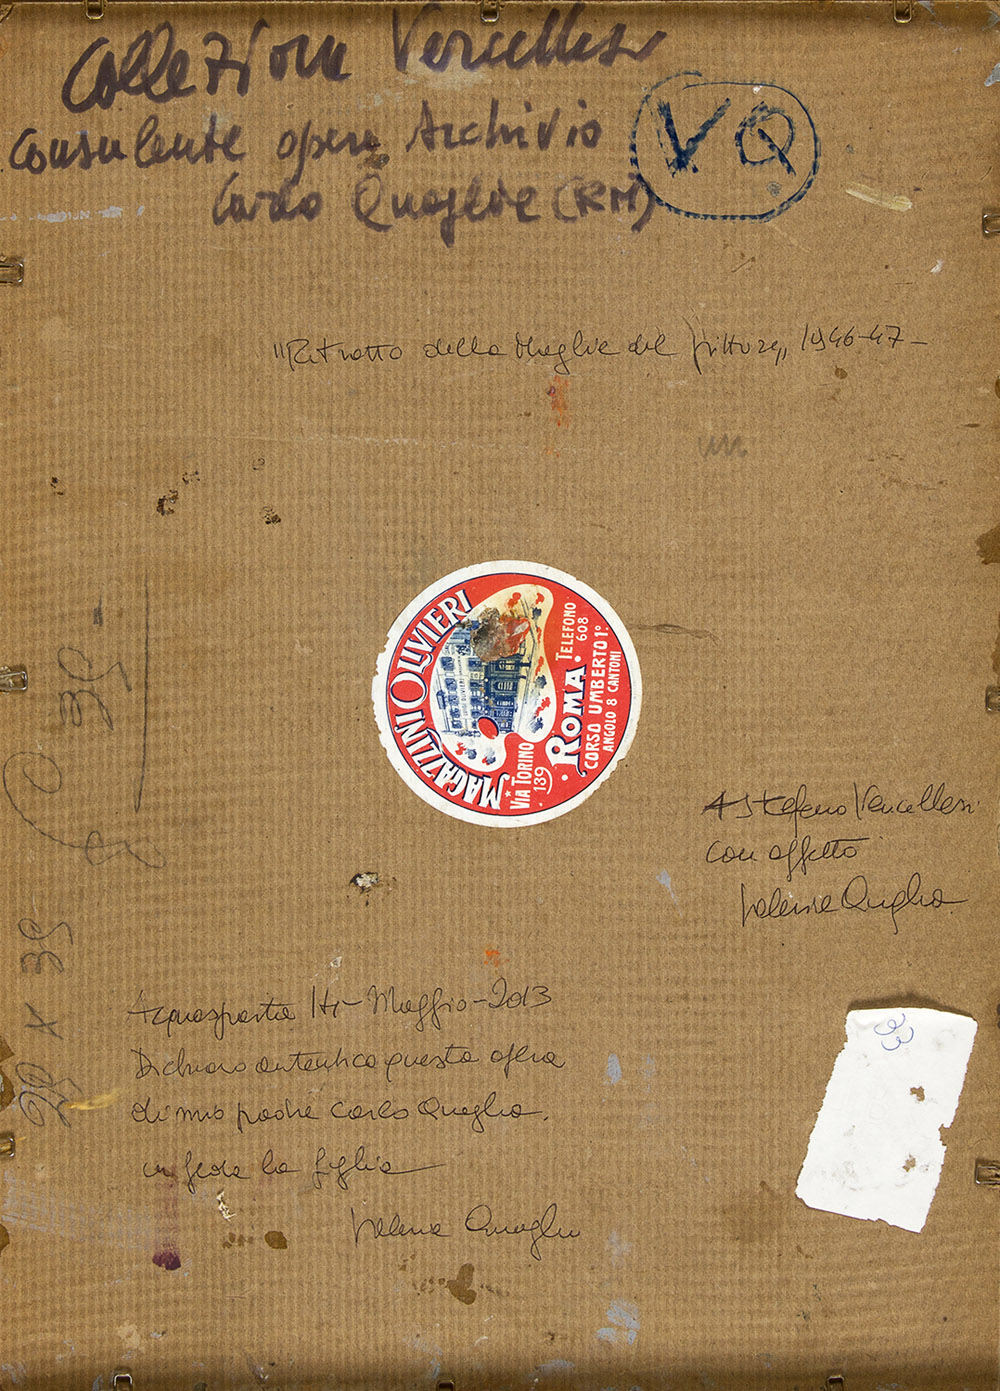 Collezione Vercellesi
Consulente opere Archivio
Carlo Quaglia (RM)
VQ
"Ritratto della Moglie del pittore,, 1946-47-
MAGAZZINI OLIVIERI
VIA TORINO
139
ROMA
TELEFONO
608
CORSO UMBERTO 1º
ANGOLO 8 CANTONI
39
29 x 39
A Stefano Vercellesi
con affetto
Valeria Quaglia
33
Acquasparta 14-Maggio-2013
Dichiaro autentica questa opera
di mio padre Carlo Quaglia.
in fede la figlia
Valeria Quaglia